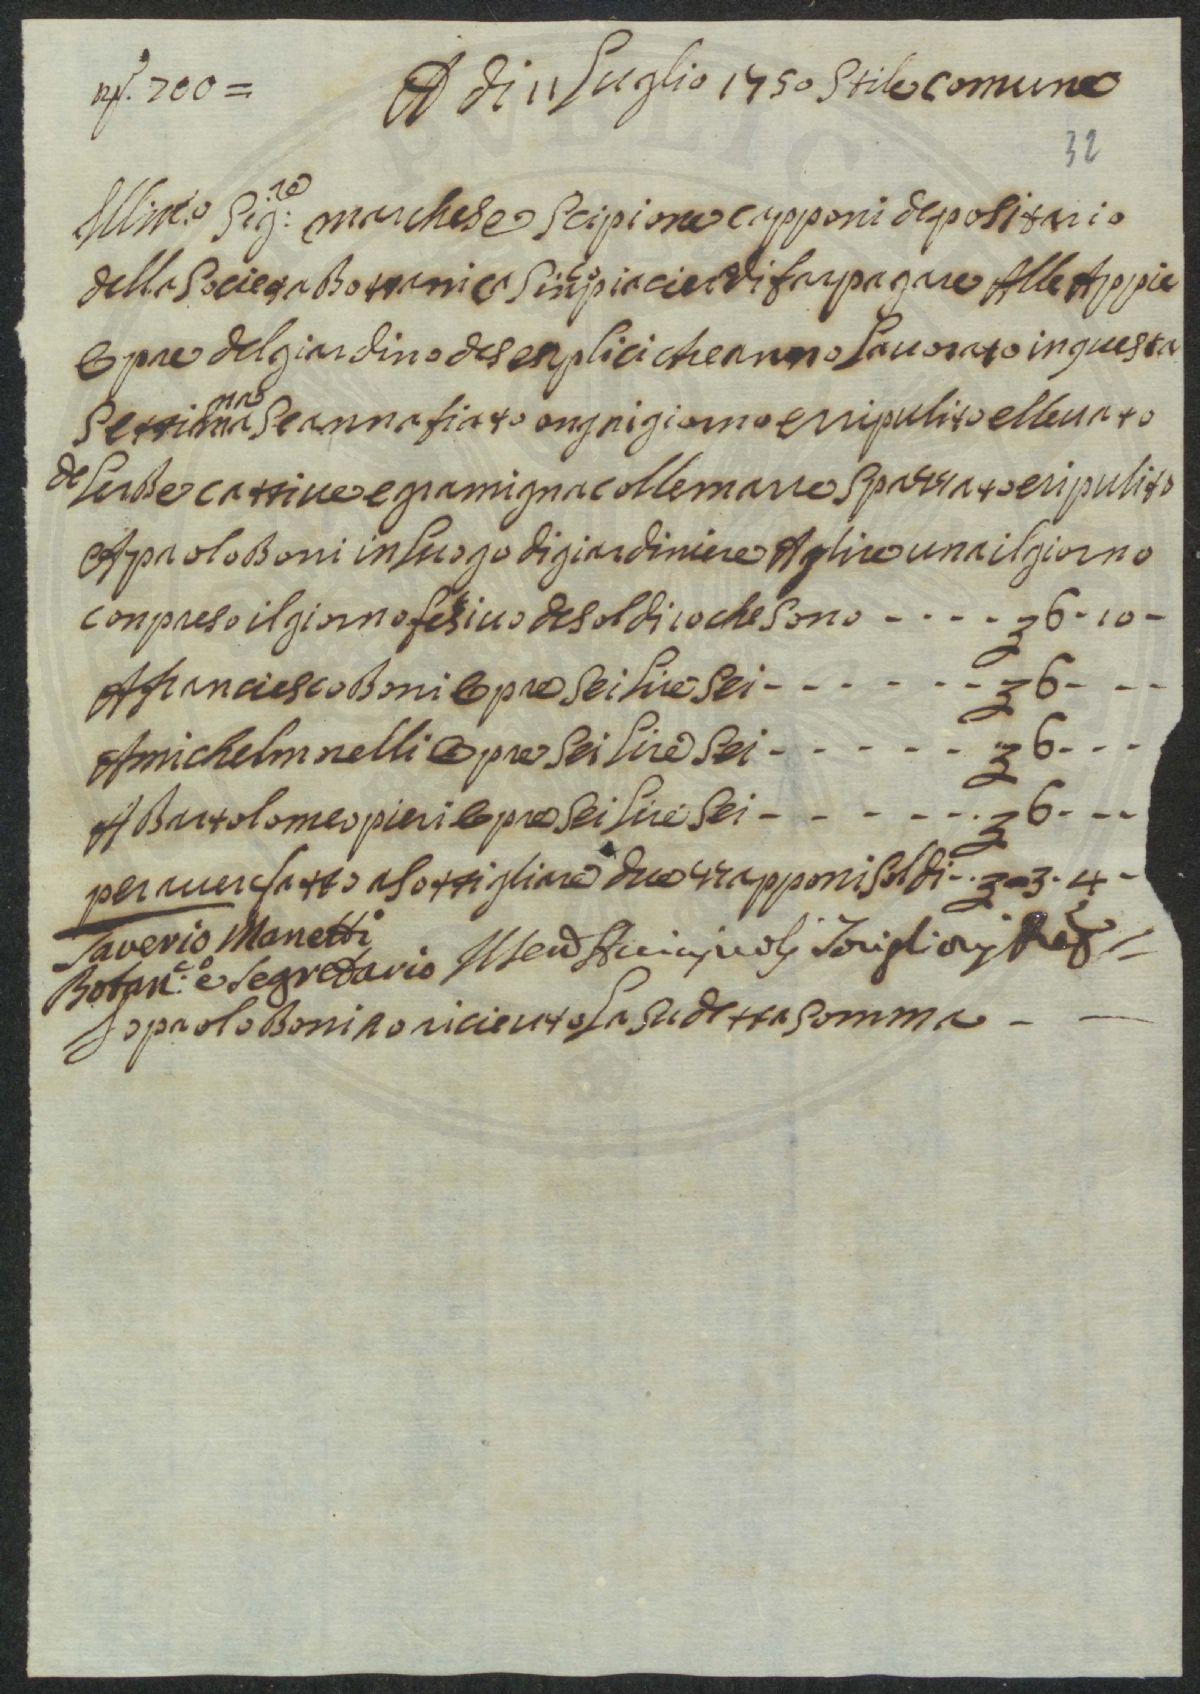 nº. 200 =
A di 11 Luglio 1750 Stile comune
32
Illmo Sig:re marchese Scipione capponi depositario
della Societa Bottanica Sinpiacierdi far pagare Alle Appie
Opre del giardino de senplici che anno Lauorato in questa
Settimana Se annafiato ongni giorno e rripulito elleuato
de Lerbe cattiue e gramigna colle marre Spazzato e ripulito
A paolo Boni in Luogo di giardiniere A glire una il giorno
conpreso il giorno festiuo de soldi 10 che Sono - - - - - 6 - 10 -
A franciesco Boni Opre Sei Lire Sei - - - - - - - 6 - - -
A michel nnelli Opre Sei Lire Sei - - - - - - 6 - - -
A Bartolomeo pieri Opre Sei Lire Sei - - - - - - 6 - - -
per auer fatto asottigliare due zzapponi Soldi - - 3 - 4 -
Saverio Manetti
Botan:co e Segretario
Io paolo Boni o riceuto La Sudetta Somma - -